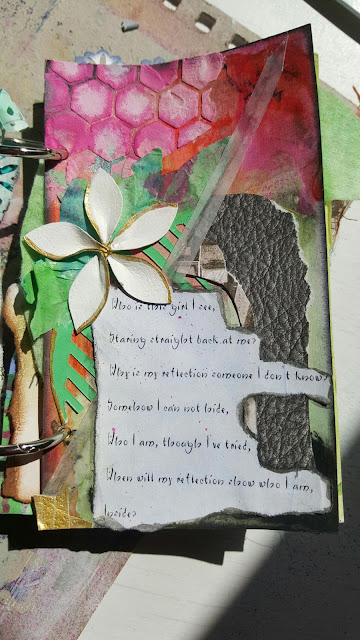 Who is this girl I see,
Staring straight back at me?
Why is my reflection someone I don't know?
Somehow I can not hide,
Who I am, though I've tried,
When will my reflection show who I am,
Inside?